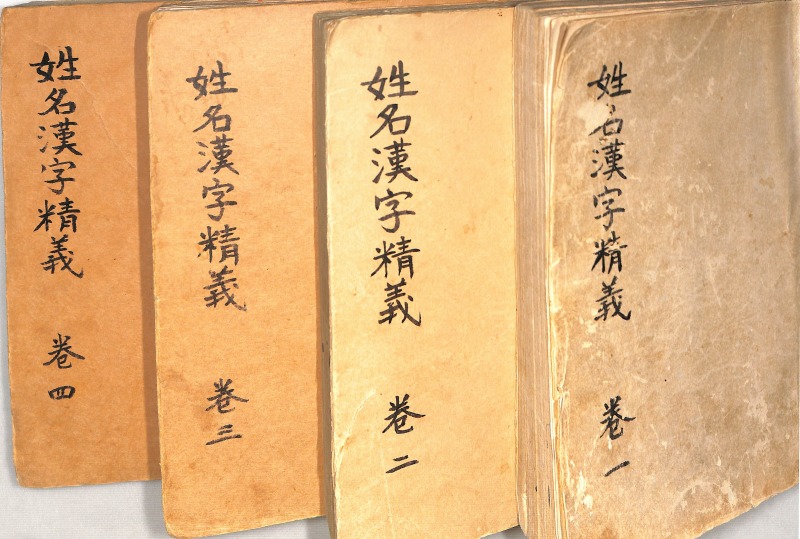 姓名漢字精義 卷一
姓名漢字精義 卷二
姓名漢字精義 卷三
姓名漢字精義 卷四